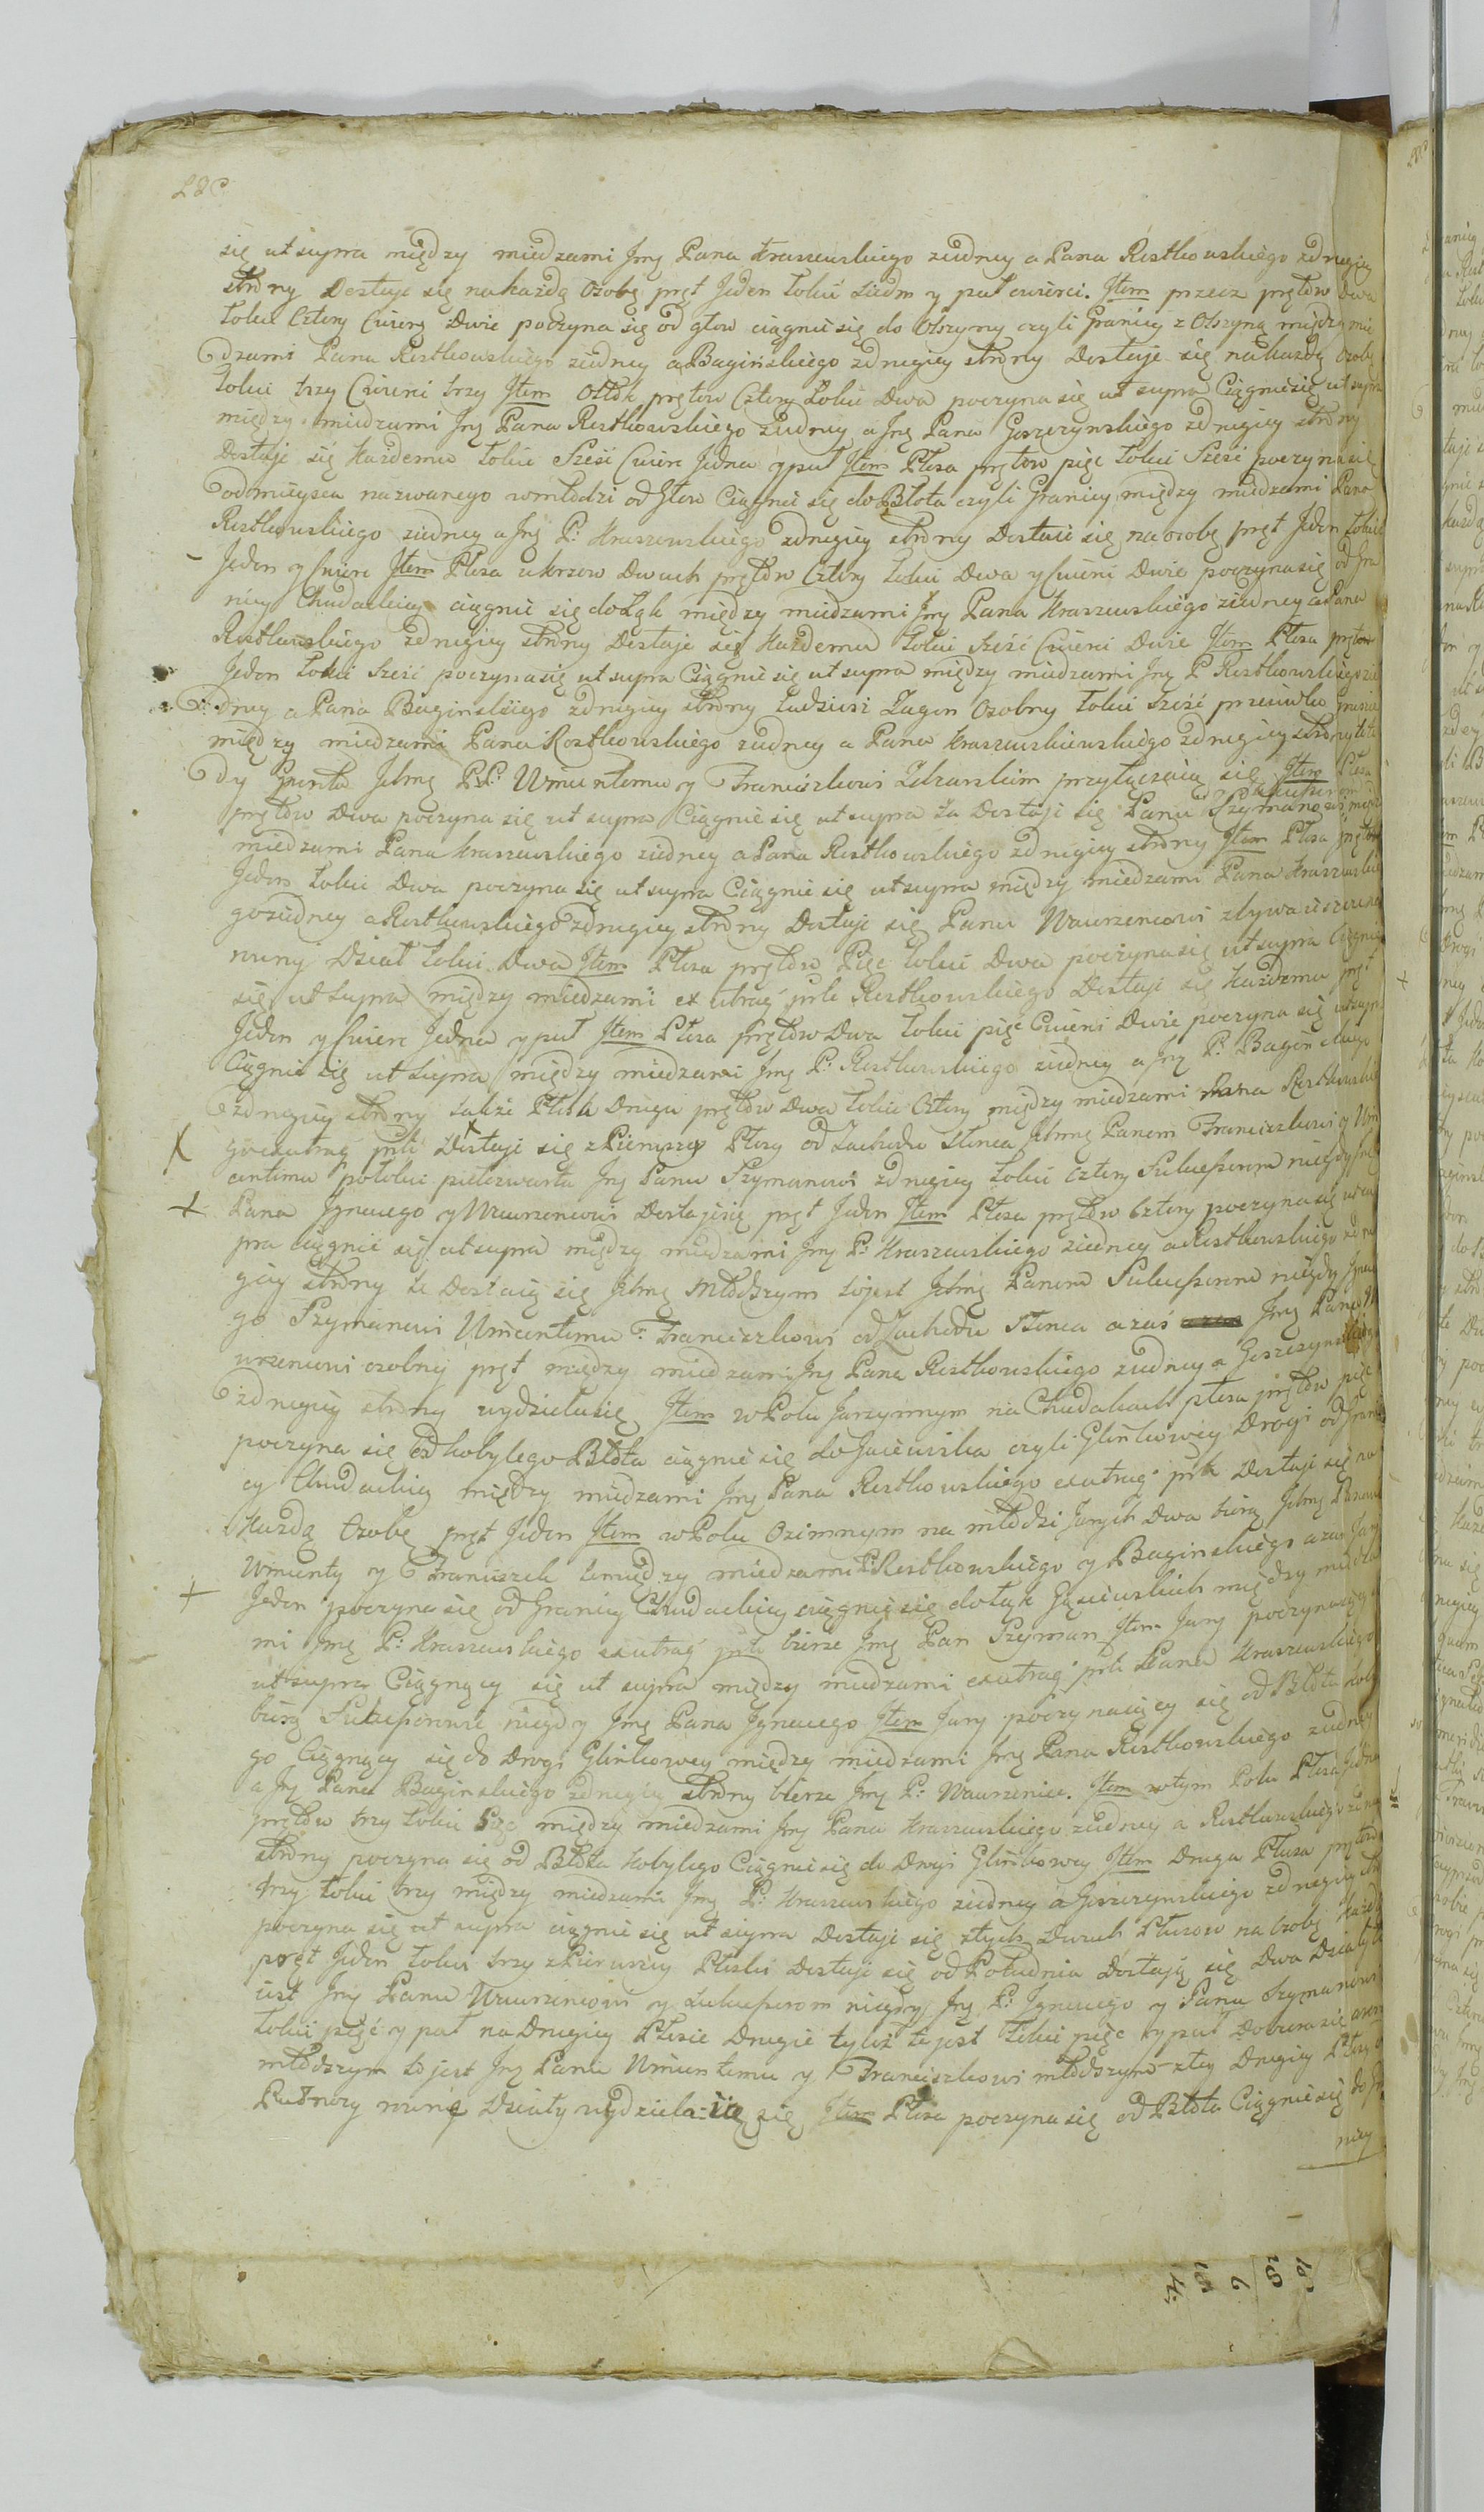 się ut supra między miedzami Jmę Pana Kraszewskiego ziedney a Pana Rostkowskiego zdrugiey
strony Dostaje się na każdą Osobę pręt Jeden Łokci siedm y puł cwierci. Item przecz prętow Dwa
Łokci Cztery Cwierc Dwie poczyna się od głow ciągnie się do Olszyny czyli Granicy z Olszyną między mie
dzami Pana Rostkowskiego ziedney a Bagińskiego zdrugiey strony Dostaje się na każdą Osobę
Łokci trzy Cwierci trzy Item prętow Cztery Łokci Dwa poczyna się ut supra Ciągnie się ut supra
między miedzami Jmę Pana Rostkowskiego ziedney a Jmę Pana Goszczynskiego zdrugiey strony
Dostaje się każdemu Łokci Sześć Cwierc Jedna y puł Item Płosa prętow pięc Łokci Sześć poczyna się
od mieysca nazwanego wmłodzi od Głow Ciągnie się do Błota czyli Granicy między miedzami Pana
Rostkowskiego ziedney a Jmę P: Kraszewskiego zdrugiey strony Dostaie się na osobę pręt Jeden Łokiec
Jeden y Cwierc Item Płosa ukrzow Dwuch prętow Cztery Łokci Dwa y Cwierci Dwie poczyna się od Gra
nicy Chudackiey ciągnie się do Łąk między miedzami Jmę Pana Kraszewskiego ziedney a Pana
Rostkowskiego zdrugiey strony Dostaje się każdemu Łokci Sześć Cwierci Dwie Item Płosa prętow
Jeden Łokci Sześć poczyna się ut supra Ciągnie się ut supra między miedzami Jmę P Rostkowskiego zie
dney a Pana Baginskiego zdrugiey strony tudziesz Zagon Osobny Łokci Sześć przeciwko
między miedzami Pana Rostkowskiego ziedney a Pana Kraszewskiewskiego zdrugiey strony
dy Grunta Jchmę PP: Wincentemu y Franciszkowi przyłączaią się Item Płosa
prętow Dwa poczyna się ut supra Ciągnie się ut supra ta Dostaje się Panu Szymanowi między
miedzami Pana Kraszewskiego ziedney a Pana Rostkowskiego zdrugiey strony Item Płosa prętow
Jeden Łokci Dwa poczyna się ut supra Ciągnie się ut supra między miedzami Pana Kraszewskie
go ziedney a Rostkowskiego zdrugiey strony Dostaje się Panu Wawrzencowi
rowny Dział Łokci Dwa Item Płosa prętow Pięc Łokci Dwa poczyna się ut supra Ciągnie
się ut supra między miedzami ex utraq prte Rostkowskiego Dostaje się każdemu pręt
Jeden y Cwierc Jedna y puł Item Płosa prętow Dwa Łokci pięc Cwierci Dwie poczyna się ut supra
Ciągnie się ut supra między miedzami Jmę P: Rostkowskiego ziedney a Jmę P: Baginskiego
zdrugiey strony także Płosa Druga prętow Dwa Łokci Cztery między miedzami Pana Rostkowskie
go exutraq prte Dostaje się zPierwszey Płosy od Zachodu Słonca Jchmę Panom Franciszkowi y Win
centemu połokci pułczwarta Jmę Panu Szymanowi zdrugiey Łokci cztery Sukcessorom niegdy Jmę
Pana Jgnacego y Wawrzencowi Dostaje się pręt Jeden Item Płosa prętow Cztery poczyna się ut su
pra ciągnie się ut supra między miedzami Jmę P: Kraszewskiego ziedney a Rostkowskiego zdru
giey strony ta Dostaię się Jchmę Młodszym tojest Jchmę Panom Sukcessorom niegdy Jgnace
go Szymanowi Wincentemu Franciszkowi od Zachodu Słonca azaś Jmę Panu Wa
wrzencowi osobny pręt między miedzami Jmę Pana Rostkowskiego ziedney a Goszczynskiego
zdrugiey strony wydziela się Item wPolu Jarzynnym na Chudakach płosa prętow pięc
poczyna się od kobylego Błota ciągnie się do Gaiewiska czyli Glinkowey Drogi od Grani
cy Chudackiey między miedzami Jmę Pana Rostkowskiego exutraq prte Dostaje się na
każdą Osobę pręt Jeden Item wPolu Ozimnym na młodzi Jarych Dwa biorą Jchmę Panowie
Wincenty y Franciszek między miedzami P: Rostkowskiego y Baginskiego azaś Jary
Jeden poczyna się od Granicy Chudackiey ciągnie się do Łąk Gąsiewskich między miedza
mi Jmę P: Kraszewskiego exutraq prte bierze Jmę Pan Szyman Item Jary poczynaiący
ut supra Ciągnący się ut supra między miedzami exutraq prte Pana Kraszewskiego
biorą Sukcessorowie niegdy Jmę Pana Jgnacego Item Jary poczynaiący się od Błota Kobyle
go Ciągnący się do Drogi Glinkowey między miedzami Jmę Pana Rostkowskiego ziedney
a Jmę Pana Baginskiego zdrugiey strony bierze Jmę P: Wawrzeniec. Item wtym Polu Płosa Jedna
prętow trzy Łokci między miedzami Jmę Pana Kraszewskiego ziedney a Rostkowskiego zdrug
strony poczyna się od Błota Kobylego Ciągnie się do Drogi Glinkowey Item Druga Płosa prętow
trzy Łokci trzy między miedzami Jmę P: Kraszewskiego ziedney a Goszczynskiego zdrugiey str
poczyna się ut supra ciągnie się ut supra Dostaje się ztych Dwuch Płosow na Osobę każdą
pręt Jeden Łokci trzy zPierwszey Płoski Dostaje się od Południa Dostają się Dwa Działy to
iest Jmę Panu Wawrzencowi y Sukcessorom niegdy Jmę P: Jgnacego y Panu Szymanowi
Łokci pięć y puł na Drugiey Płosie Drugie tyloż tojest Łokci pięc y puł Dobiera się azas
młodszym tojest Jmę Panu Wincentemu y Franciszkowi młodszym ztey Drugiey Płosy od
Pułnocy rownę Działy wydziela ią się Item Płosa poczyna się od Błota Ciągnie się do Gra
nicy